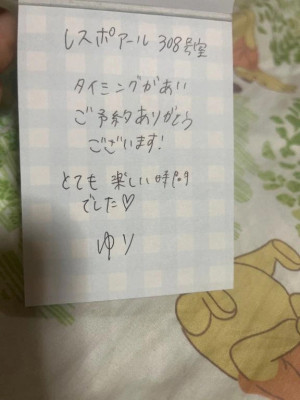 レスポアール 308号室
タイミングがあい
ご予約ありがとう
ございます!
とても 楽しい時間
でした♡
ゆり